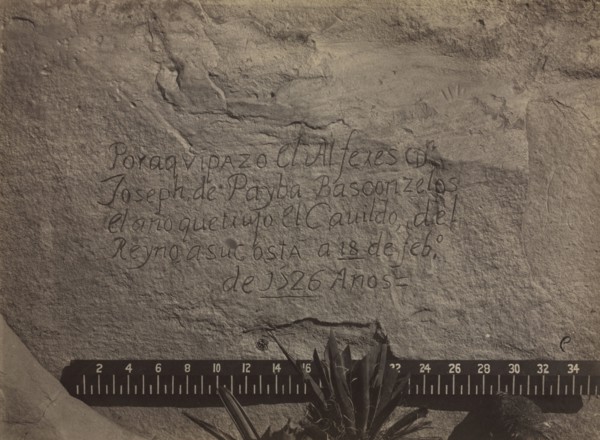 Por aqui pazo el Alferes Dn
Joseph de Payba Basconzelos
el año que tuujo el Cauildo, del
Reyno a su costa a 18 de feb.o
de 1726 Años
2 4 6 8 10 12 14 16 22 24 26 28 30 32 34